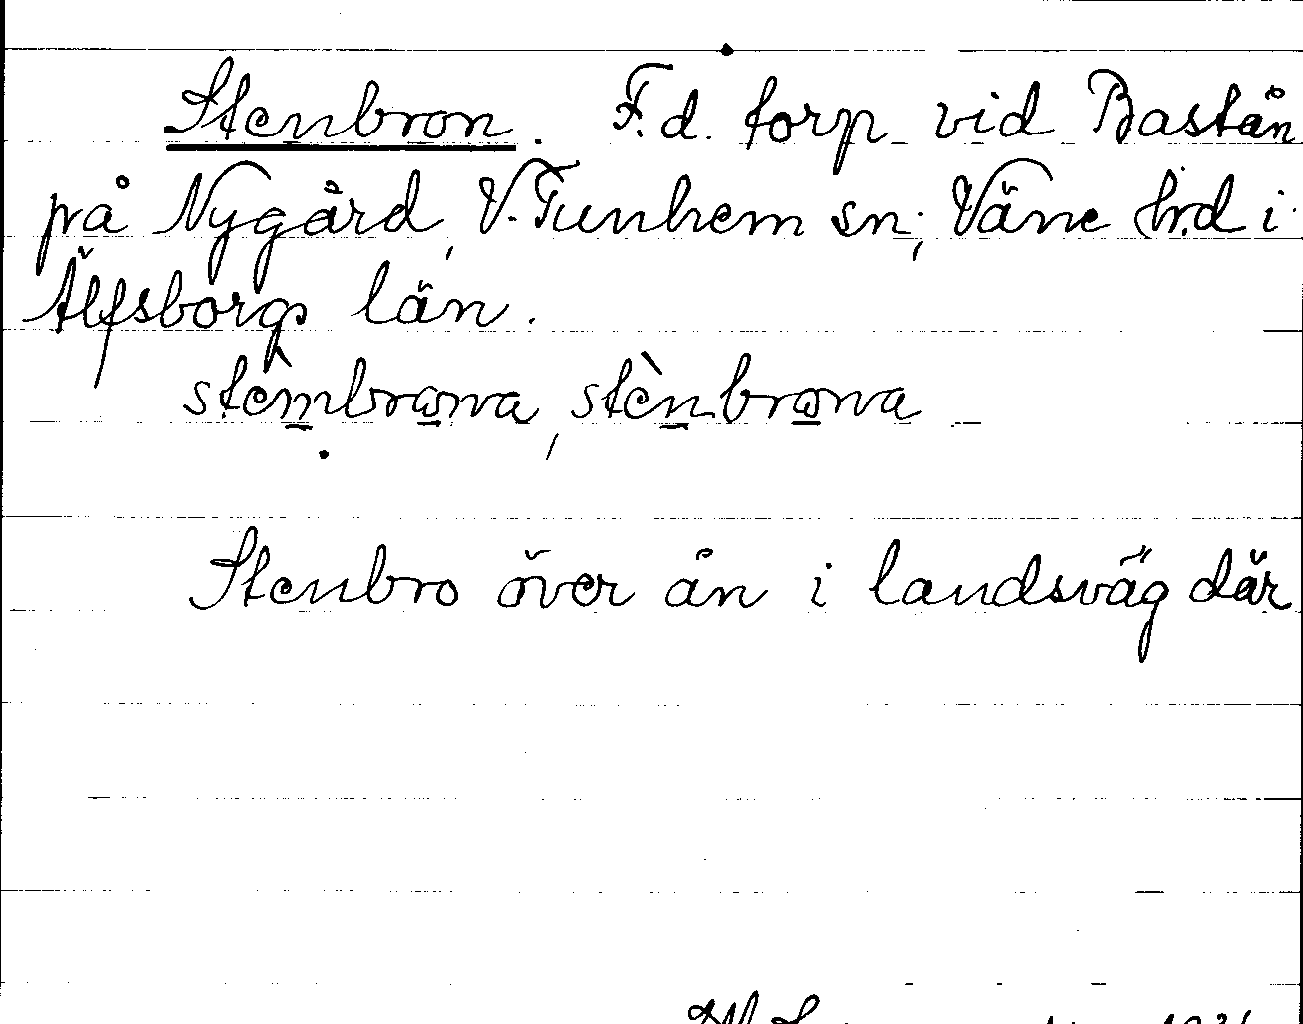 Stenbron. F.d. torp vid Bastån
på Nygård, V. Tunhem sn, Väne hd i
Älfsborgs län.
stèmbrωna, stènbrωna
Stenbro över ån i landsväg där